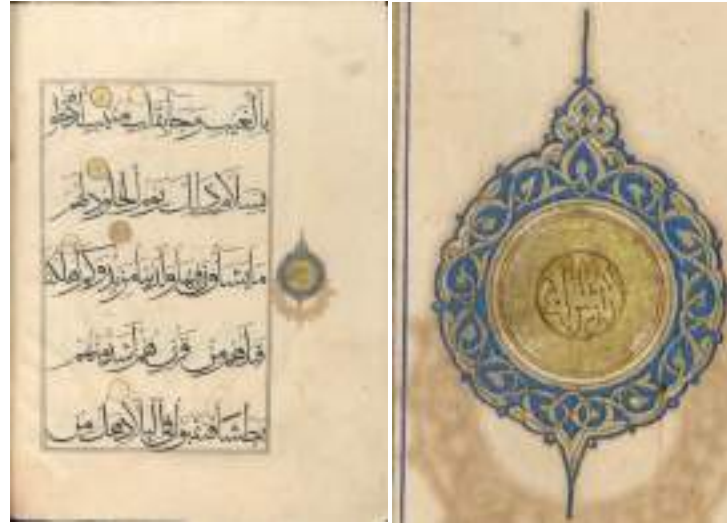 بالغيب وجاء بقلب منيب ادخلوها
بسلام ذلك يوم الخلود لهم
ما يشاؤن فيها ولدينا مزيد وكم اهلكنا
قبلهم من قرن هم اشد منهم
بطشا فنقبوا في البلاد هل من